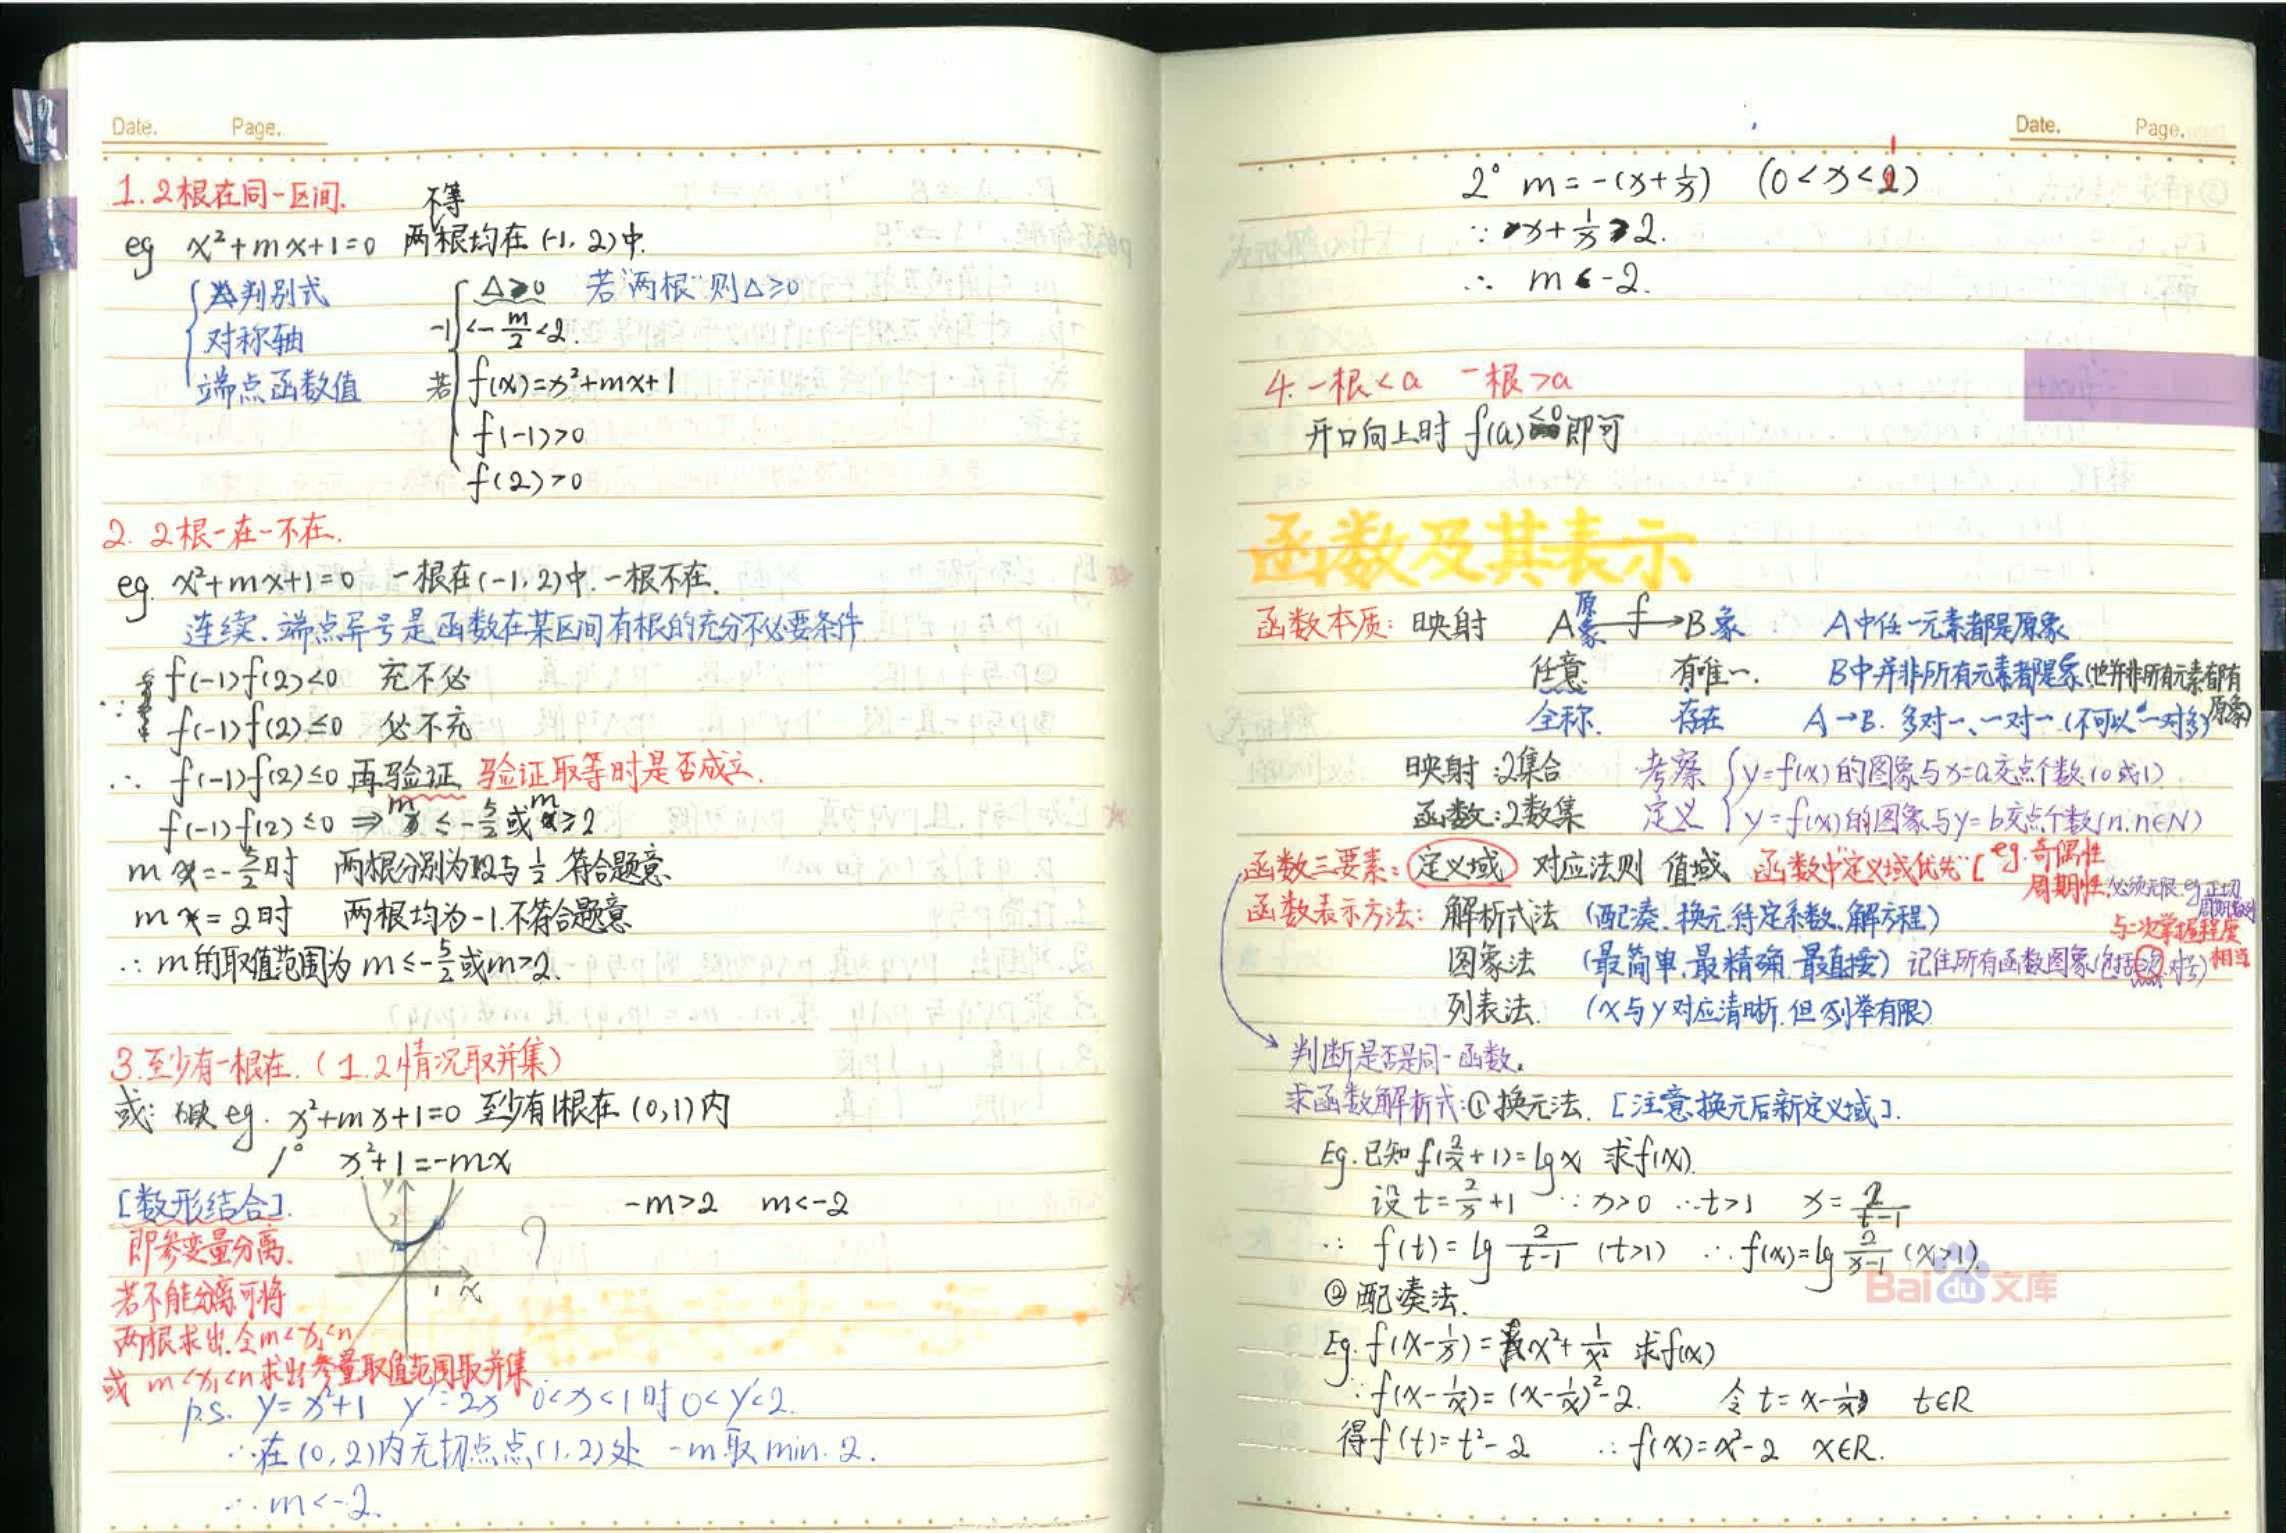 Date. Page.
1. 2根在同一区间.
不等
eg x²+mx+1=0 两根均在(-1, 2)中.
判别式
对称轴
端点函数值
Δ>0 若"两根"则Δ≥0
-1<-m/2<2.
若 f(x)=x²+mx+1
f(-1)>0
f(2)>0
2. 2根一在一不在.
eg. x²+mx+1=0 一根在(-1, 2)中. 一根不在.
连续、端点异号是函数在某区间有根的充分不必要条件
∵ f(-1)f(2)<0 充不必
f(-1)f(2)≤0 必不充
∴ f(-1)f(2)≤0 再验证 验证取等时是否成立.
f(-1)f(2)≤0 ⇒ m≤-5/2或m≥2
m=-5/2时 两根分别为2与1/2.符合题意.
m=2时 两根均为-1.不符合题意
∴ m的取值范围为 m≤-5/2或m>2.
3.至少有一根在.(1.2情况取并集)
或: eg. x²+mx+1=0 至少有1根在(0,1)内
1° x²+1=-mx
[数形结合].
-m>2 m<-2
即参变量分离.
若不能分离可将
两根求出.令m<x₁<n
或 m<x₁<n求出参量取值范围取并集
y
2
1 x
?
p.s. y=x²+1 y'=2x 0<x<1时 0<y'<2.
∴在(0,2)内无切点点(1,2)处 -m取min.2.
∴m<-2.
Date. Page.
2° m=-(x+1/x) (0<x<1)
∵ x+1/x>2.
∴ m<-2.
4. 一根<a 一根>a
开口向上时 f(a)<0即可
函数及其表示
函数本质: 映射 A原象 f→B象 A中任一元素都是原象
任意 有唯一. B中并非所有元素都是象(也并非所有元素都有原象)
全称. 存在 A→B. 多对一、一对一 (不可以"一对多")
映射:2集合 考察 y=f(x)的图象与x=a交点个数(0或1)
函数:2数集 定义 y=f(x)的图象与y=b交点个数(n, n∈N)
函数三要素: 定义域 对应法则 值域 函数中"定义域优先" [eg.奇偶性
周期性.必须无限.eg正切
函数表示方法: 解析式法 (配凑、换元、待定系数、解方程)
与二次掌握程度相当
图象法 (最简单、最精确、最直接) 记住所有函数图象(包括 对号)
列表法. (x与y对应清晰.但列举有限)
判断是否是同一函数.
求函数解析式:①换元法. [注意换元后新定义域].
Eg.已知f(2/x+1)=lgx 求f(x).
设t=2/x+1 ∵x>0 ∴t>1 x=2/(t-1)
∴ f(t)=lg 2/(t-1) (t>1) ∴f(x)=lg 2/(x-1) (x>1).
②配凑法.
Eg. f(x-1/x)=x²+1/x² 求f(x)
∵f(x-1/x)=(x-1/x)²-2. 令t=x-1/x t∈R
得f(t)=t²-2 ∴f(x)=x²-2 x∈R.
Bai du 文库